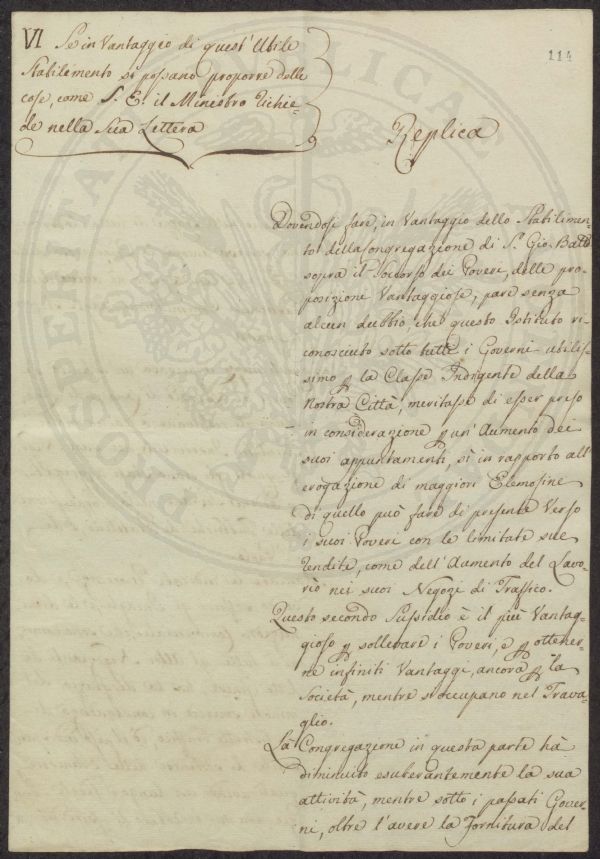 114
VI Se in Vantaggio di quest' Utile
Stabilimento si possano proporre delle
cose, come S. E. il Ministro richie-
de nella Sua Lettera
Replica
Dovendosi fare, in Vantaggio dello Stabilimen-
to della Congregazione di S. Gio. Batta
sopra il Soccorso dei Poveri, delle pro-
posizione Vantaggiose, pare senza
alcun dubbio, che questo Istituto ri-
conosciuto sotto tutti i Governi abilis-
simo p la Classe Indigente della
Nostra Città, meritasse di esser preso
in considerazione p un' Aumento dei
suoi appuntamenti, sì in rapporto all'
erogazione di maggiori Elemosine
di quello può fare di presente Verso
i suoi Poveri con le limitate sue
rendite, come dell' Aumento del Lavo-
rio nei suoi Negozi di Traffico.
Questo secondo Sussidio è il più Vantag-
gioso p sollevare i Poveri, e p ottener-
ne infiniti Vantaggi, ancora p la
Società, mentre s'occupano nel Trava-
glio.
La Congregazione in questa parte hà
diminuito esuberantemente la sua
attività, mentre sotto i passati Gover-
ni, oltre l'avere la Fornitura del